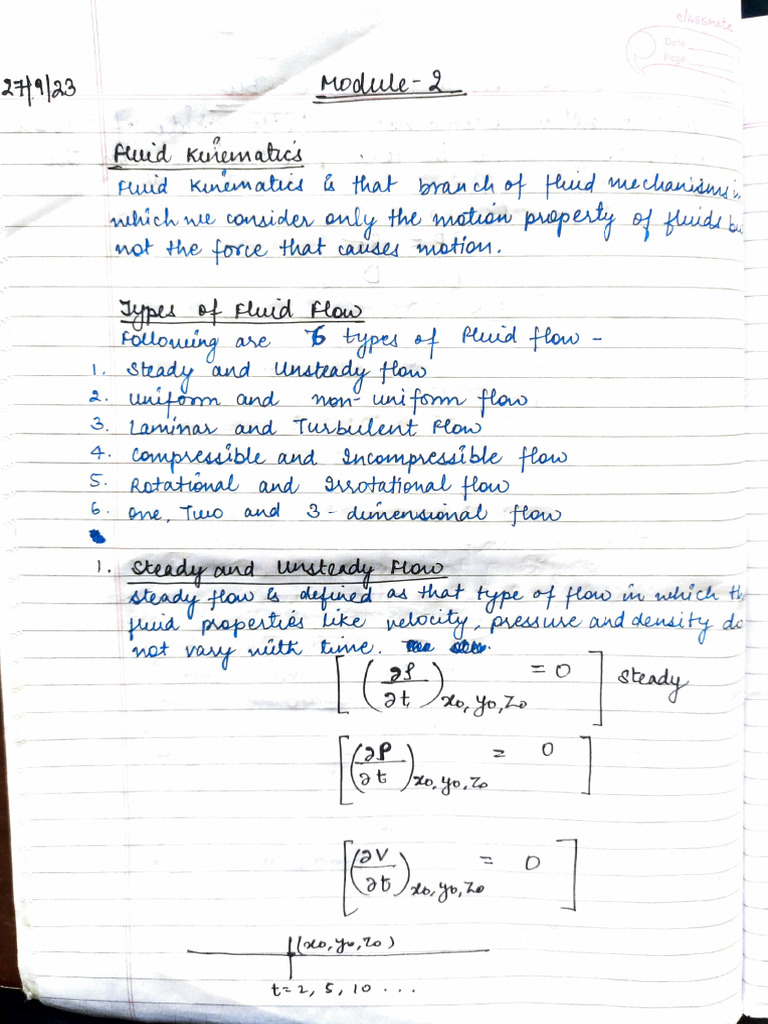 classmate
Date
Page
27/9/23
Module-2
Fluid Kinematics
Fluid Kinematics is that branch of fluid mechanisms i
which we consider only the motion property of fluids bu
not the force that causes motion.
Types of Fluid Flow
Following are 6 types of Fluid flow -
1. Steady and Unsteady flow
2. Uniform and non-uniform flow
3. Laminar and Turbulent Flow
4. Compressible and Incompressible flow
5. Rotational and Irrotational flow
6. One, Two and 3-dimensional flow
1. Steady and Unsteady Flow
Steady flow is defined as that type of flow in which th
fluid properties like velocity, pressure and density do
not vary with time.
[(∂ρ/∂t)x₀,y₀,z₀ = 0] Steady
[(∂P/∂t)x₀,y₀,z₀ = 0]
[(∂V/∂t)x₀,y₀,z₀ = 0]
(x₀,y₀,z₀)
t=2, 5, 10 ...